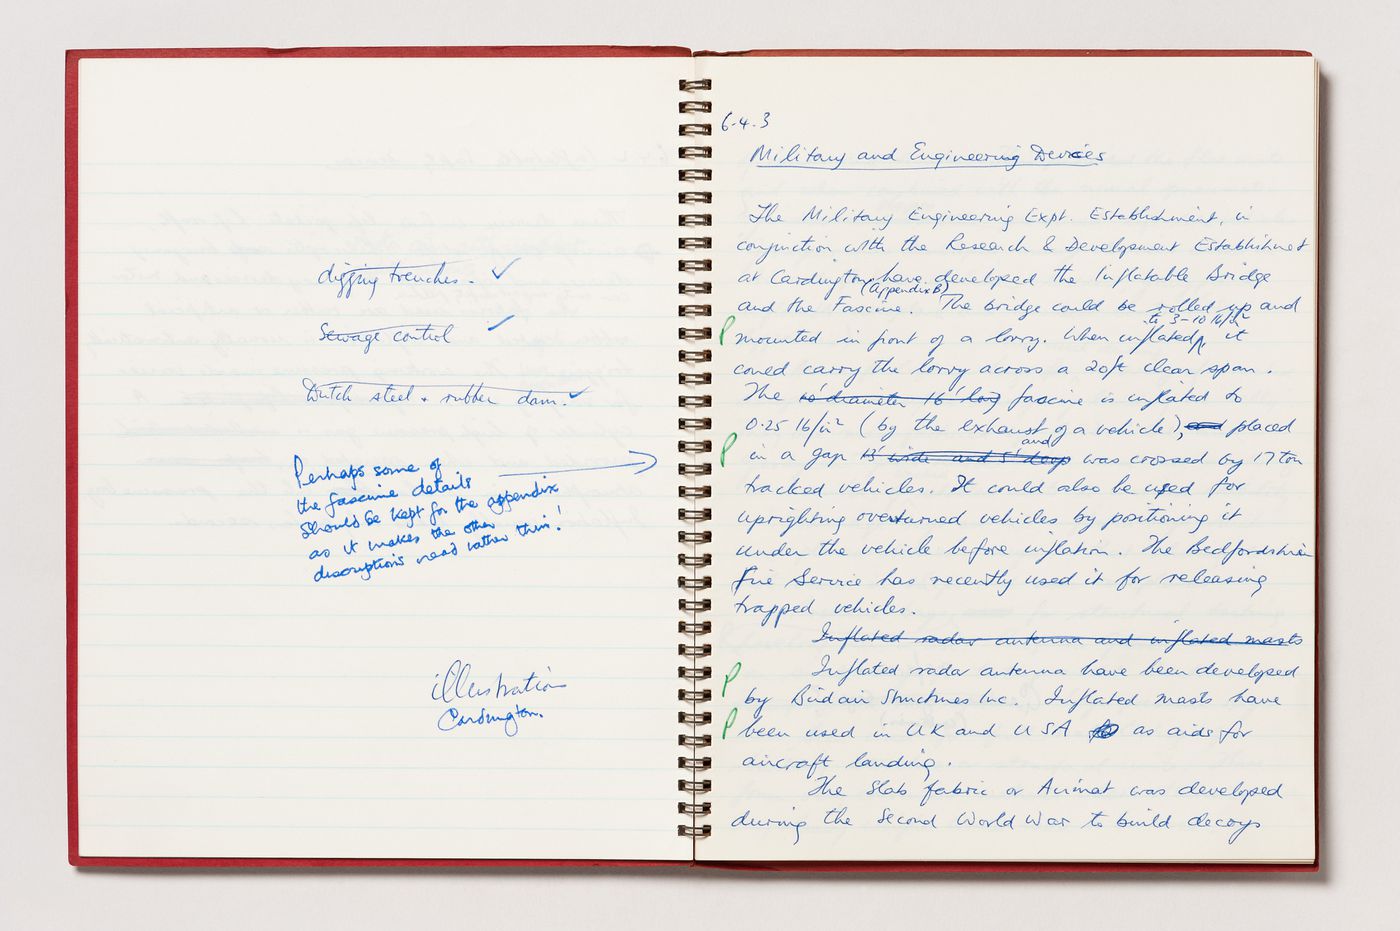 digging trenches. ✓
Sewage control ✓
Dutch steel + rubber dam. ✓
Perhaps some of
the fascine details
should be kept for the appendix
as it makes the other
descriptions read rather thin!
illustration
Cardington.
6.4.3
Military and Engineering Devices
The Military Engineering Expt. Establishment, in
conjnction with the Research & Development Establishmet
at Cardington, have developed the Inflatable Bridge
(Appendix B)
and the Fascine. The bridge could be rolled up and
to 3-10 lb/in²
P mounted in front of a lorry. When inflated, it
could carry the lorry across a 20ft clear span.
The 10' diameter 16' long fascine is inflated to
0.25 lb/in² (by the exhaust of a vehicle), and placed
and
P in a gap 13' wide and 5' deep was crossed by 17 ton
tracked vehicles. It could also be used for
uprighting overturned vehicles by positioning it
under the vehicle before inflation. The Bedfordshire
Fire Service has recently used it for releasing
trapped vehicles.
Inflated radar antenna and inflated masts
P Inflated radar antenna have been developed
by Birdair Structures Inc. Inflated masts have
P been used in UK and USA as aids for
aircraft landing.
The slab fabric or Airmat was developed
during the Second World War to build decoys